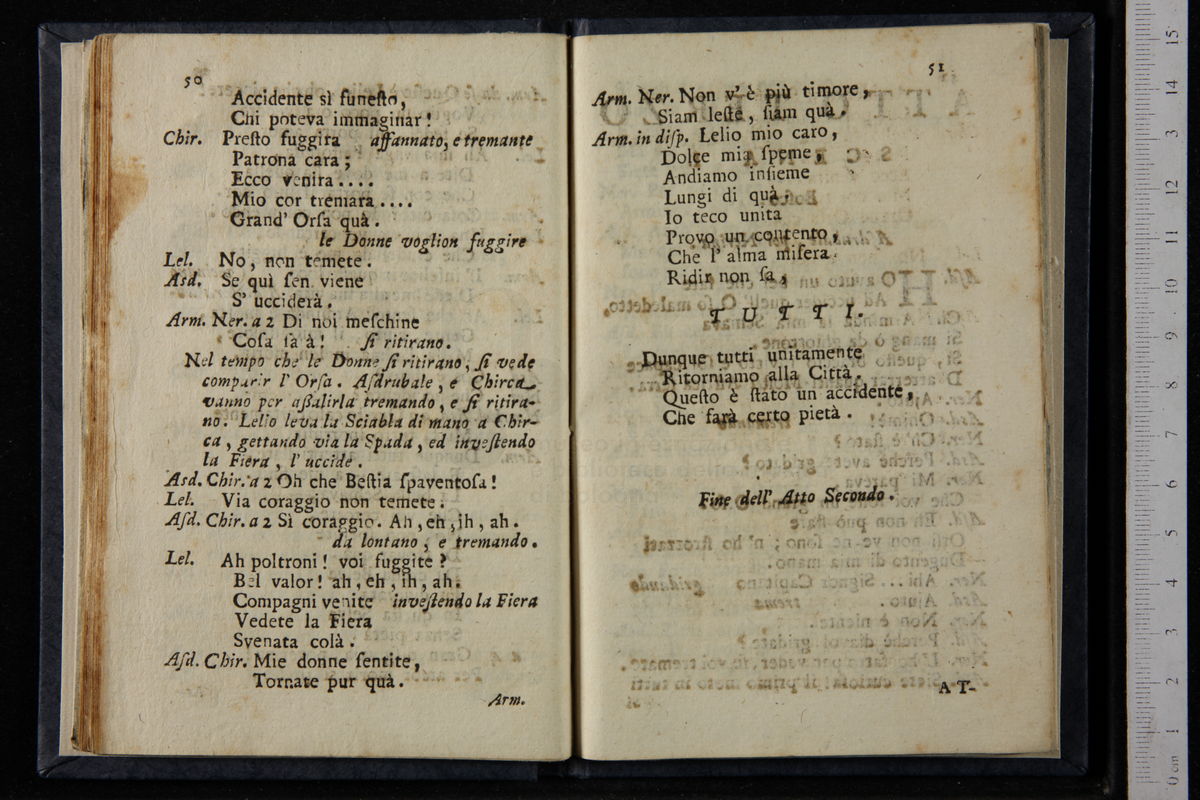 50
Accidente sì funeſto,
Chi poteva immaginar!
Chir. Preſto fuggira affannato, e tremante
Patrona cara;
Ecco venira....
Mio cor tremara....
Grand' Orſa quà.
le Donne voglion fuggire
Lel. No, non temete.
Asd. Se quì ſen viene
S' ucciderà.
Arm. Ner. a 2 Di noi meſchine
Coſa ſa à! ſi ritirano.
Nel tempo che le Donne ſi ritirano, ſi vede
comparir l' Orſa. Aſdrubale, e Chirca
vanno per aſſalirla tremando, e ſi ritira-
no. Lelio leva la Sciabla di mano a Chir-
ca, gettando via la Spada, ed inveſtendo
la Fiera, l' uccide.
Asd. Chir. a 2 Oh che Beſtia ſpaventoſa!
Lel. Via coraggio non temete.
Aſd. Chir. a 2 Sì coraggio. Ah, eh, ih, ah.
da lontano, e tremando.
Lel. Ah poltroni! voi fuggite?
Bel valor! ah, eh, ih, ah.
Compagni venite inveſtendo la Fiera
Vedete la Fiera
Svenata colà.
Aſd. Chir. Mie donne ſentite,
Tornate pur quà.
Arm.
51
Arm. Ner. Non v' è più timore,
Siam leſte, ſiam quà.
Arm. in diſp. Lelio mio caro,
Dolce mia ſpeme,
Andiamo inſieme
Lungi di quà.
Io teco unita
Provo un contento,
Che l' alma miſera
Ridir non ſa.
TUTTI.
Dunque tutti unitamente
Ritorniamo alla Città.
Queſto è ſtato un accidente,
Che farà certo pietà.
Fine dell' Atto Secondo.
AT-